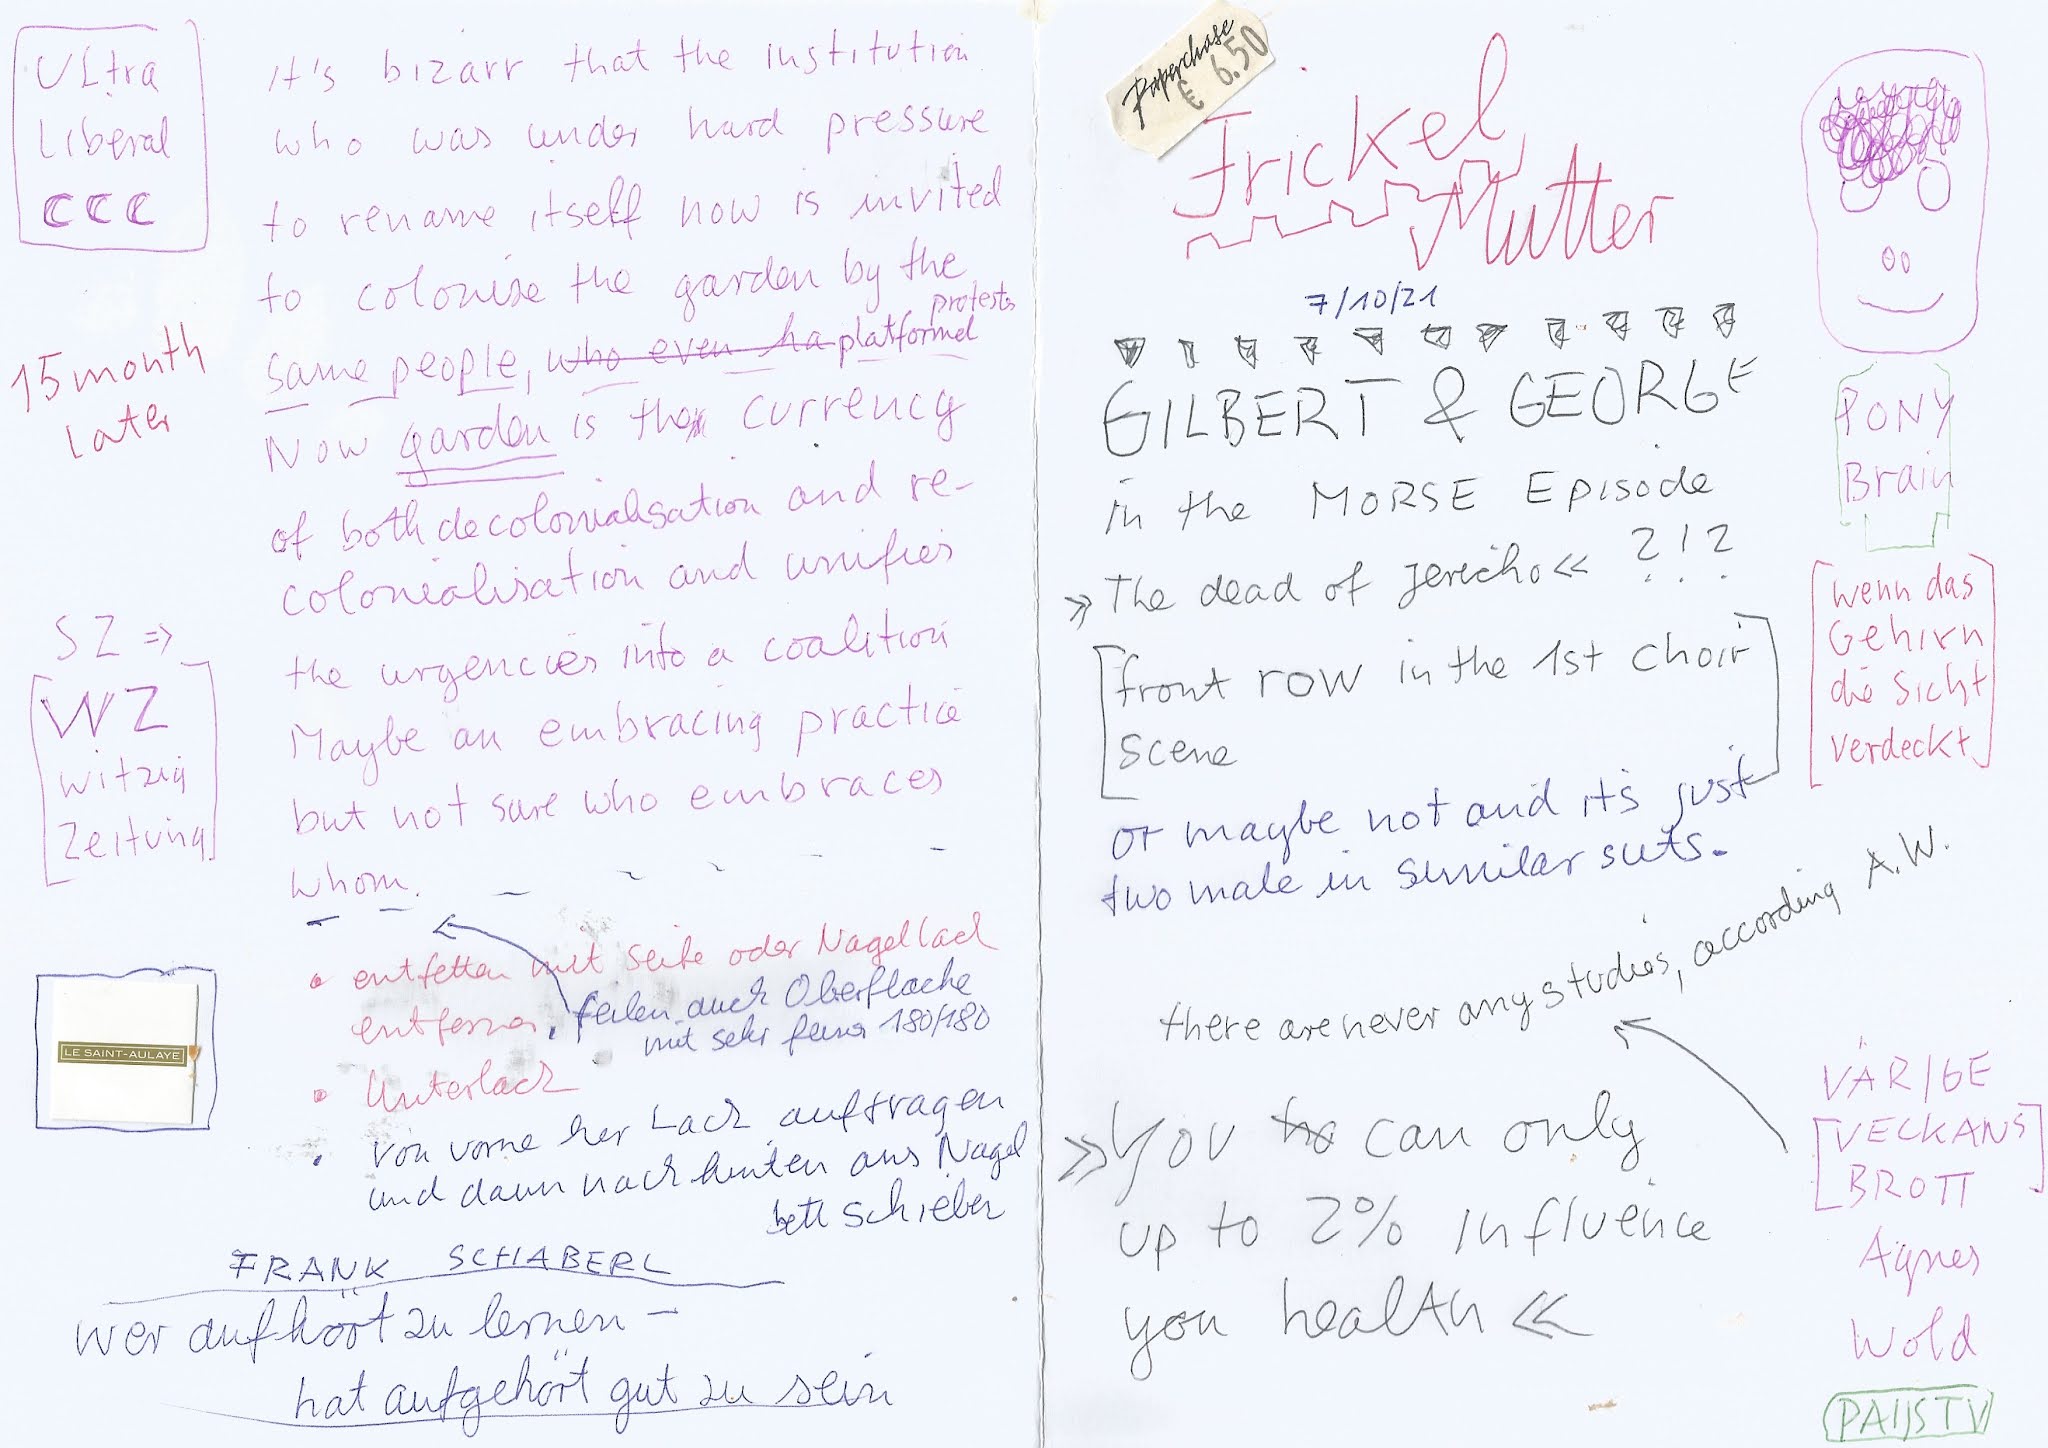 Ultra
Liberal
CCC
15 month
Later
SZ =>
WZ
witzig
Zeitung
LE SAINT-AULAYE
it's bizarr that the institution
who was under hard pressure
to rename itself now is invited
to colonise the garden by the
protests
same people, who even ha platformed
Now garden is the currency
of both decolonialisation and re-
colonialisation and unifies
the urgencies into a coalition
Maybe an embracing practice
but not sure who embraces
whom.
• entfetten mit Seife oder Nagellack
entferner. feilen auch Oberfläche
mit sehr feiner 180/180
• Unterlack
• von vorne her Lack auftragen
und dann nach hinten ans Nagel
bett schieben
FRANK SCHABERL
wer aufhört zu lernen –
hat aufgehört gut zu sein
Paperchase
€ 6.50
Frickel
Mutter
7/10/21
GILBERT & GEORGE
in the MORSE Episode
» The dead of Jericho « ?!?
[front row in the 1st choir
scene]
or maybe not and it's just
two male in similar suits.
there are never any studies, according A.W.
» You can only
up to 2% influence
you health «
PONY
Brain
[wenn das
Gehirn
die Sicht
verdeckt]
VÄRIGE
[VECKANS
BROTT]
Agnes
Wold
PAIJSTV